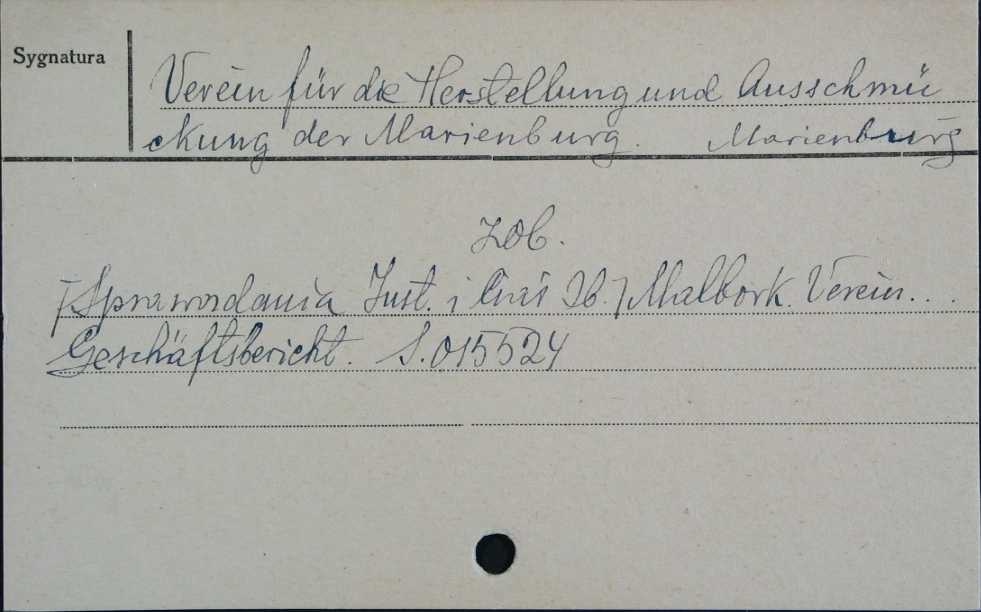 Sygnatura
Verein für die Herstellung und Ausschmü
ckung der Marienburg. Marienburg
zob.
[Sprawozdania Inst. i Tow.] Malbork. Verein...
Geschäftsbericht. S.015524